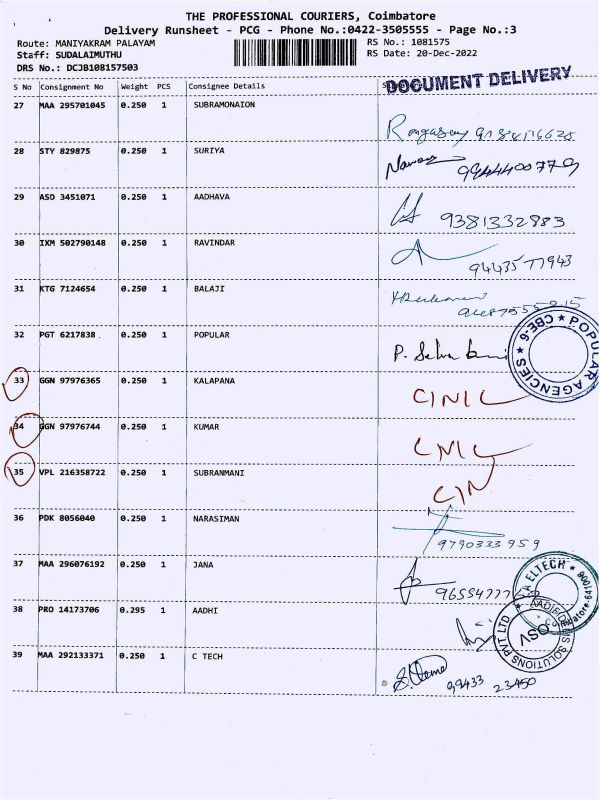 THE PROFESSIONAL COURIERS, Coimbatore
Delivery Runsheet - PCG - Phone No.:0422-3505555 - Page No.:3
Route: MANIYAKRAM PALAYAM RS No.: 1081575
Staff: SUDALAIMUTHU RS Date: 20-Dec-2022
DRS No.: DCJB108157503
S No Consignment No Weight PCS Consignee Details DOCUMENT DELIVERY
27 MAA 295701045 0.250 1 SUBRAMONAION
28 STY 829875 0.250 1 SURIYA 9944400779
29 ASD 3451071 0.250 1 AADHAVA 9381332883
30 IXM 502790148 0.250 1 RAVINDAR 9443577943
31 KTG 7124654 0.250 1 BALAJI
32 PGT 6217838 0.250 1 POPULAR P. Selva
POPULAR AGENCIES ★ CBE-6 ★
33 GGN 97976365 0.250 1 KALAPANA CINIL
34 GGN 97976744 0.250 1 KUMAR CNIL
35 VPL 216358722 0.250 1 SUBRANMANI CIN
36 PDK 8056040 0.250 1 NARASIMAN 9790333959
37 MAA 296076192 0.250 1 JANA
ELTECH ★
38 PRO 14173706 0.295 1 AADHI
SOLUTIONS PVT LTD ★
39 MAA 292133371 0.250 1 C TECH 99433 23450